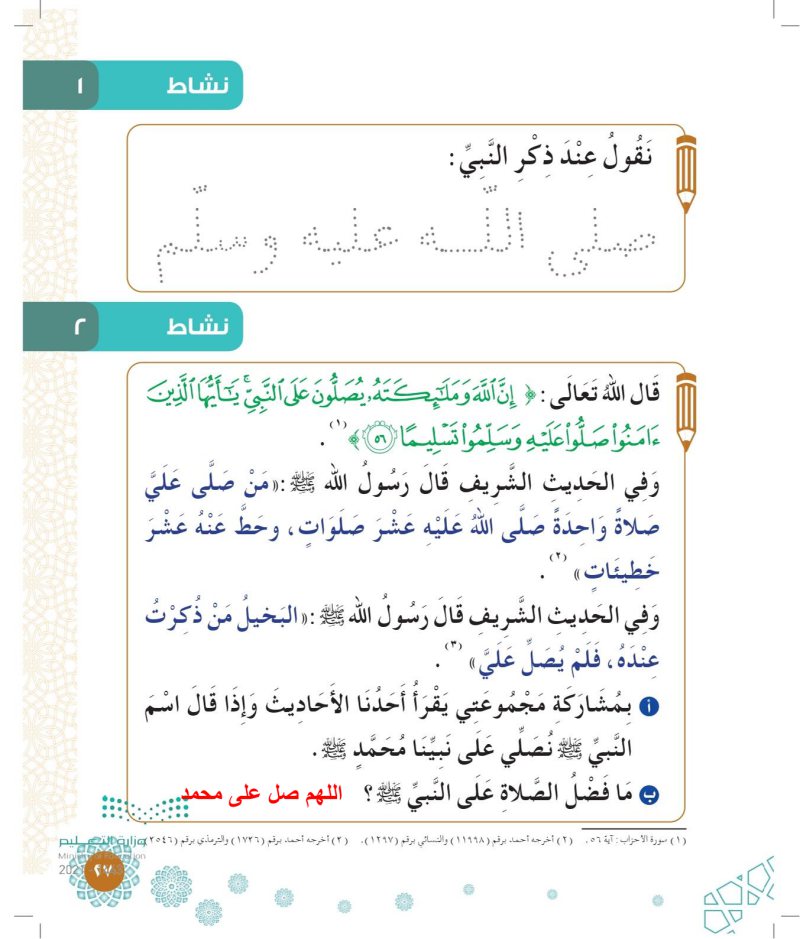 نشاط ١
نَقُولُ عِنْدَ ذِكْرِ النَّبِيِّ:
صلى اللّه عليه وسلّم
نشاط ٢
قَالَ اللهُ تَعَالَى: ﴿ إِنَّ ٱللَّهَ وَمَلَٰٓئِكَتَهُۥ يُصَلُّونَ عَلَى ٱلنَّبِيِّۚ يَٰٓأَيُّهَا ٱلَّذِينَ
ءَامَنُوا۟ صَلُّوا۟ عَلَيْهِ وَسَلِّمُوا۟ تَسْلِيمًا ٥٦ ﴾(١).
وَفِي الحَدِيثِ الشَّرِيفِ قَالَ رَسُولُ الله ﷺ: «مَنْ صَلَّى عَلَيَّ
صَلاةً وَاحِدَةً صَلَّى اللهُ عَلَيْهِ عَشْرَ صَلَوَاتٍ، وحَطَّ عَنْهُ عَشْرَ
خَطِيئَاتٍ»(٢).
وَفِي الحَدِيثِ الشَّرِيفِ قَالَ رَسُولُ الله ﷺ: «البَخِيلُ مَنْ ذُكِرْتُ
عِنْدَهُ، فَلَمْ يُصَلِّ عَلَيَّ»(٣).
أ بِمُشَارَكَةِ مَجْمُوعَتِي يَقْرَأُ أَحَدُنَا الأَحَادِيثَ وَإِذَا قَالَ اسْمَ
النَّبِيِّ ﷺ نُصَلِّي عَلَى نَبِيِّنَا مُحَمَّدٍ ﷺ.
ب مَا فَضْلُ الصَّلاةِ عَلَى النَّبِيِّ ﷺ؟ اللهم صل على محمد
(١) سورة الأحزاب: آية ٥٦. (٢) أخرجه أحمد برقم (١١٩٩٨) والنسائي برقم (١٢٩٧). (٢) أخرجه أحمد برقم (١٧٢٦) والترمذي برقم (٢٥٤٦)
وزارة التعليم
Ministry of Education
٢٧